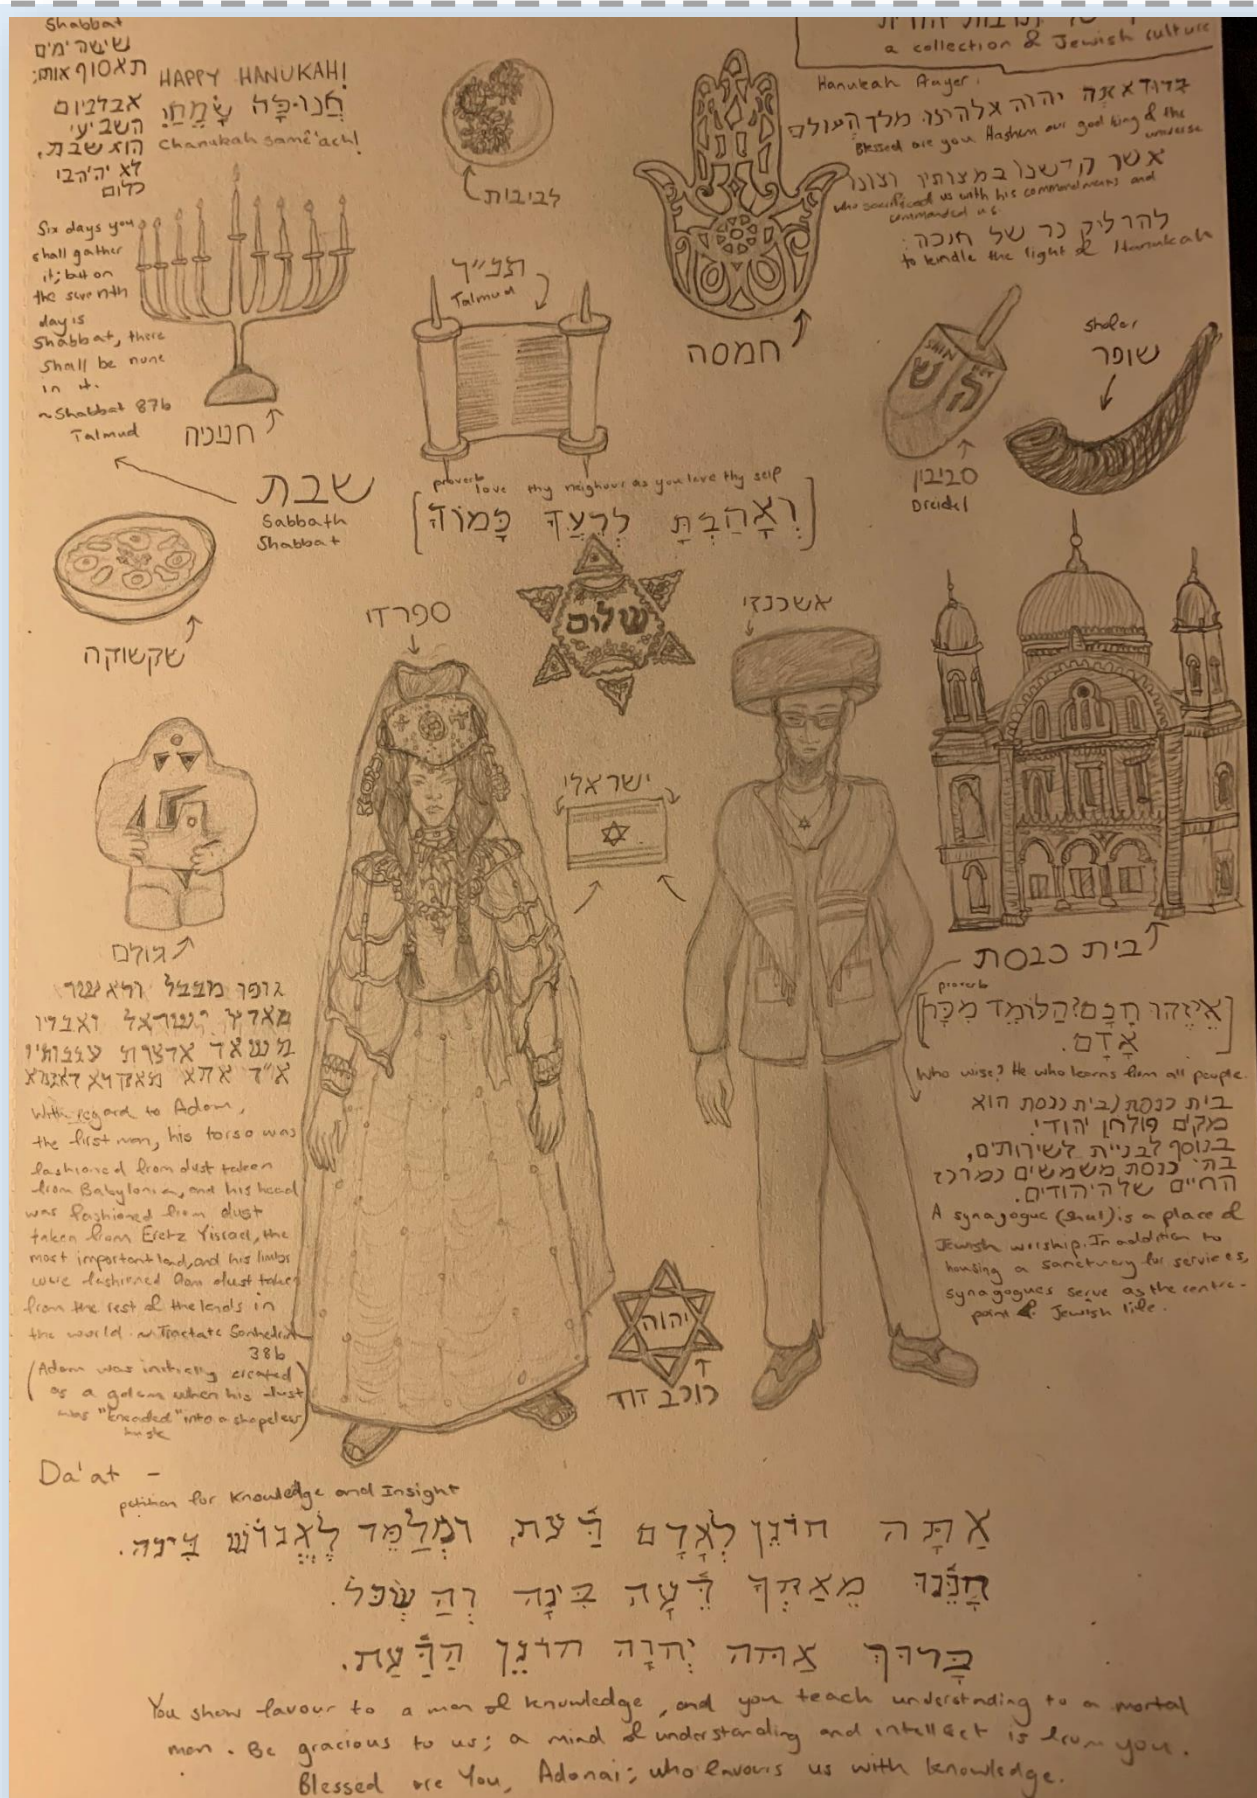 Shabbat
שישה ימים
תאסוף אותו;
אבל ביום
השביעי
הוא שבת,
לא יהיה בו
כלום
Six days you
shall gather
it; but on
the seventh
day is
Shabbat, there
shall be none
in it.
~Shabbat 87b
Talmud
HAPPY HANUKAH!
Chanukah samê'ach!
חנוכיה
לביבות
תנ״ך
Talmud
חמסה
a collection of Jewish culture
Hanukah Prayer:
יהוה אלהינו מלך העולם
Blessed are you Hashem our god king of the
universe
אשר קדשנו במצותיו וצונו
us with his commandments and
commanded us
להדליק נר של חנכה:
to kindle the light of Hanukah
SHIN
ש
ה
סביבון
Dreidel
Shofar
שופר
שבת
Sabbath
Shabbat
proverb
love thy neighour as you love thy self
[וְאָהַבְתָּ לְרֵעֲךָ כָּמוֹךָ]
שקשוקה
ספרדי
שלום
אשכנזי
ישראלי
גולם
With regard to Adam,
the first man, his torso was
fashioned from dust taken
from Babylonia, and his head
was fashioned from dust
taken from Eretz Yisrael, the
most important land, and his limbs
were fashioned from dust taken
from the rest of the lands in
the world ~Tractate Sanhedrin
38b
(Adam was initially created
as a golem when his dust
was "kneaded" into a shapeless
husk
בית כנסת
proverb
[אֵיזֶהוּ חָכָם? הַלּוֹמֵד מִכָּל
אָדָם.]
Who wise? He who learns from all people.
בית כנסת/בית כנסת הוא
מקום פולחן יהודי.
בנוסף לבניית לשירותים,
בה׳ כנסת משמשים כמרכז
החיים של היהודים.
A synagogue (shul) is a place of
Jewish worship. In addition to
housing a sanctuary for services,
synagogues serve as the centre-
point of Jewish life.
יהוה
כוכב דוד
Da'at -
petition for Knowledge and Insight
אַתָּה חוֹנֵן לְאָדָם דַּעַת, וּמְלַמֵּד לֶאֱנוֹשׁ בִּינָה.
חָנֵּנוּ מֵאִתְּךָ דֵּעָה בִּינָה וְהַשְׂכֵּל.
בָּרוּךְ אַתָּה יְהוָה חוֹנֵן הַדָּעַת.
You show favour to a man of knowledge, and you teach understnding to a mortal
man. Be gracious to us; a mind of understanding and intellect is from you.
Blessed are You, Adonai; who favours us with knowledge.